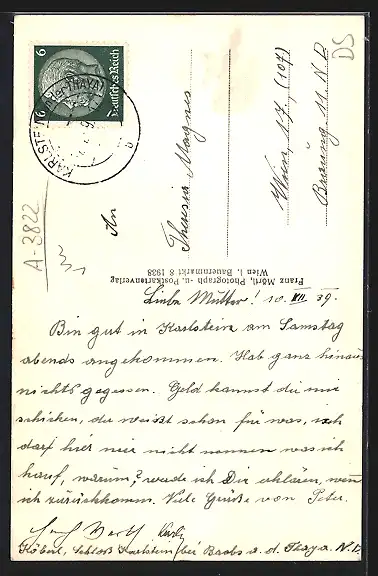 6 6
Deutsches Reich
KARLSTEIN
THAYA
DS
A-3822
An
Theresia Magnes
Wien, 17, (107)
Franz Mörtl, Photograph.- u. Postkartenverlag
Wien I. Bauernmarkt 8 1938
Liebe Mutter! 10. XII. 39.
Bin gut in Karlstein am Samstag
abends angekommen. Hab ganz hinaus
nichts gegessen. Geld kannst du mir
schicken, du weißt schon für was, ich
darf hier mir nicht nennen was ich
kauf, warum? werde ich Dir erklären, wenn
ich zurückkomm. Viele Grüße von Peter.
Schloß Karlstein bei Raabs a. d. Thaya. N.D.